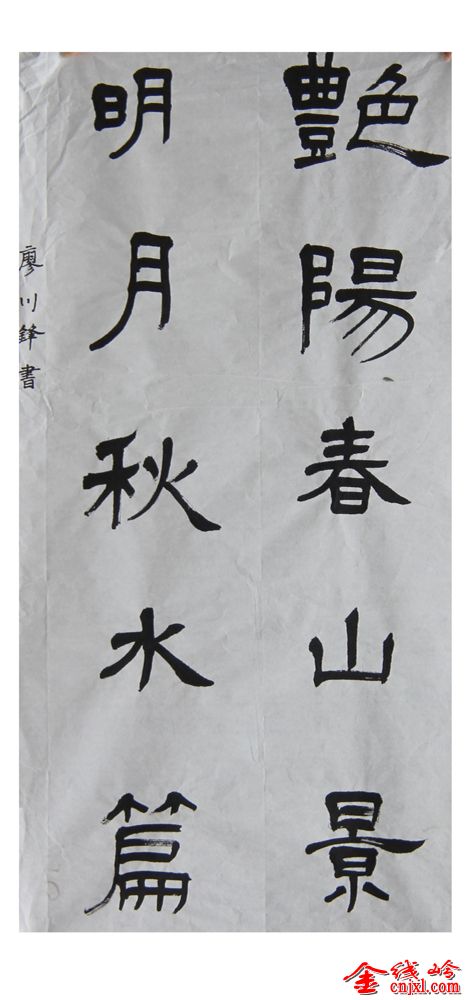 艷陽春山景
明月秋水篇
廖川鋒書
金线岭
cnjxl.com